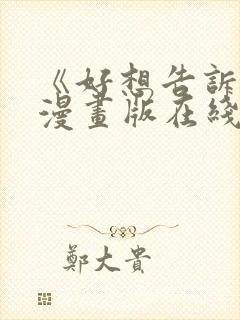 《好想告訴
漫畫版在綫
鄭大貴